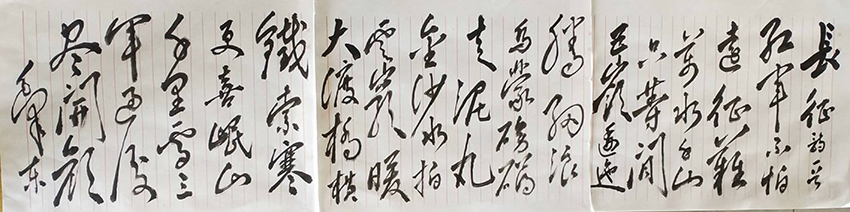 長征詩一首
紅軍不怕
遠征難
萬水千山
只等閒
五嶺逶迤
騰細浪
烏蒙磅礴
走泥丸
金沙水拍
雲嶺暖
大渡橋横
鐵索寒
更喜岷山
千里雪三
軍過後
尽開顔
毛澤东